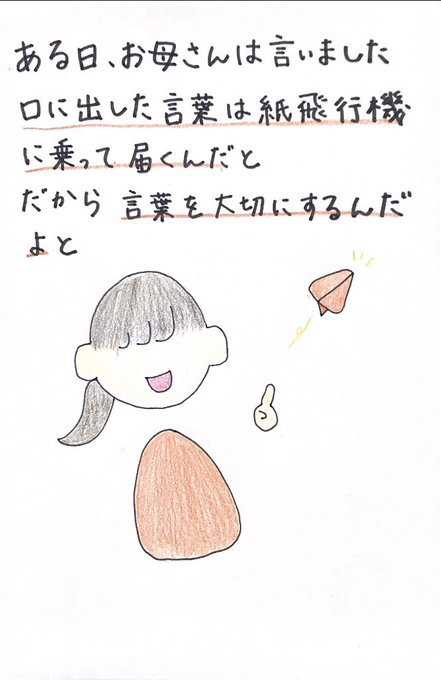 ある日、お母さんは言いました
口に出した言葉は紙飛行機
に乗って届くんだと
だから 言葉を大切にするんだ
よと